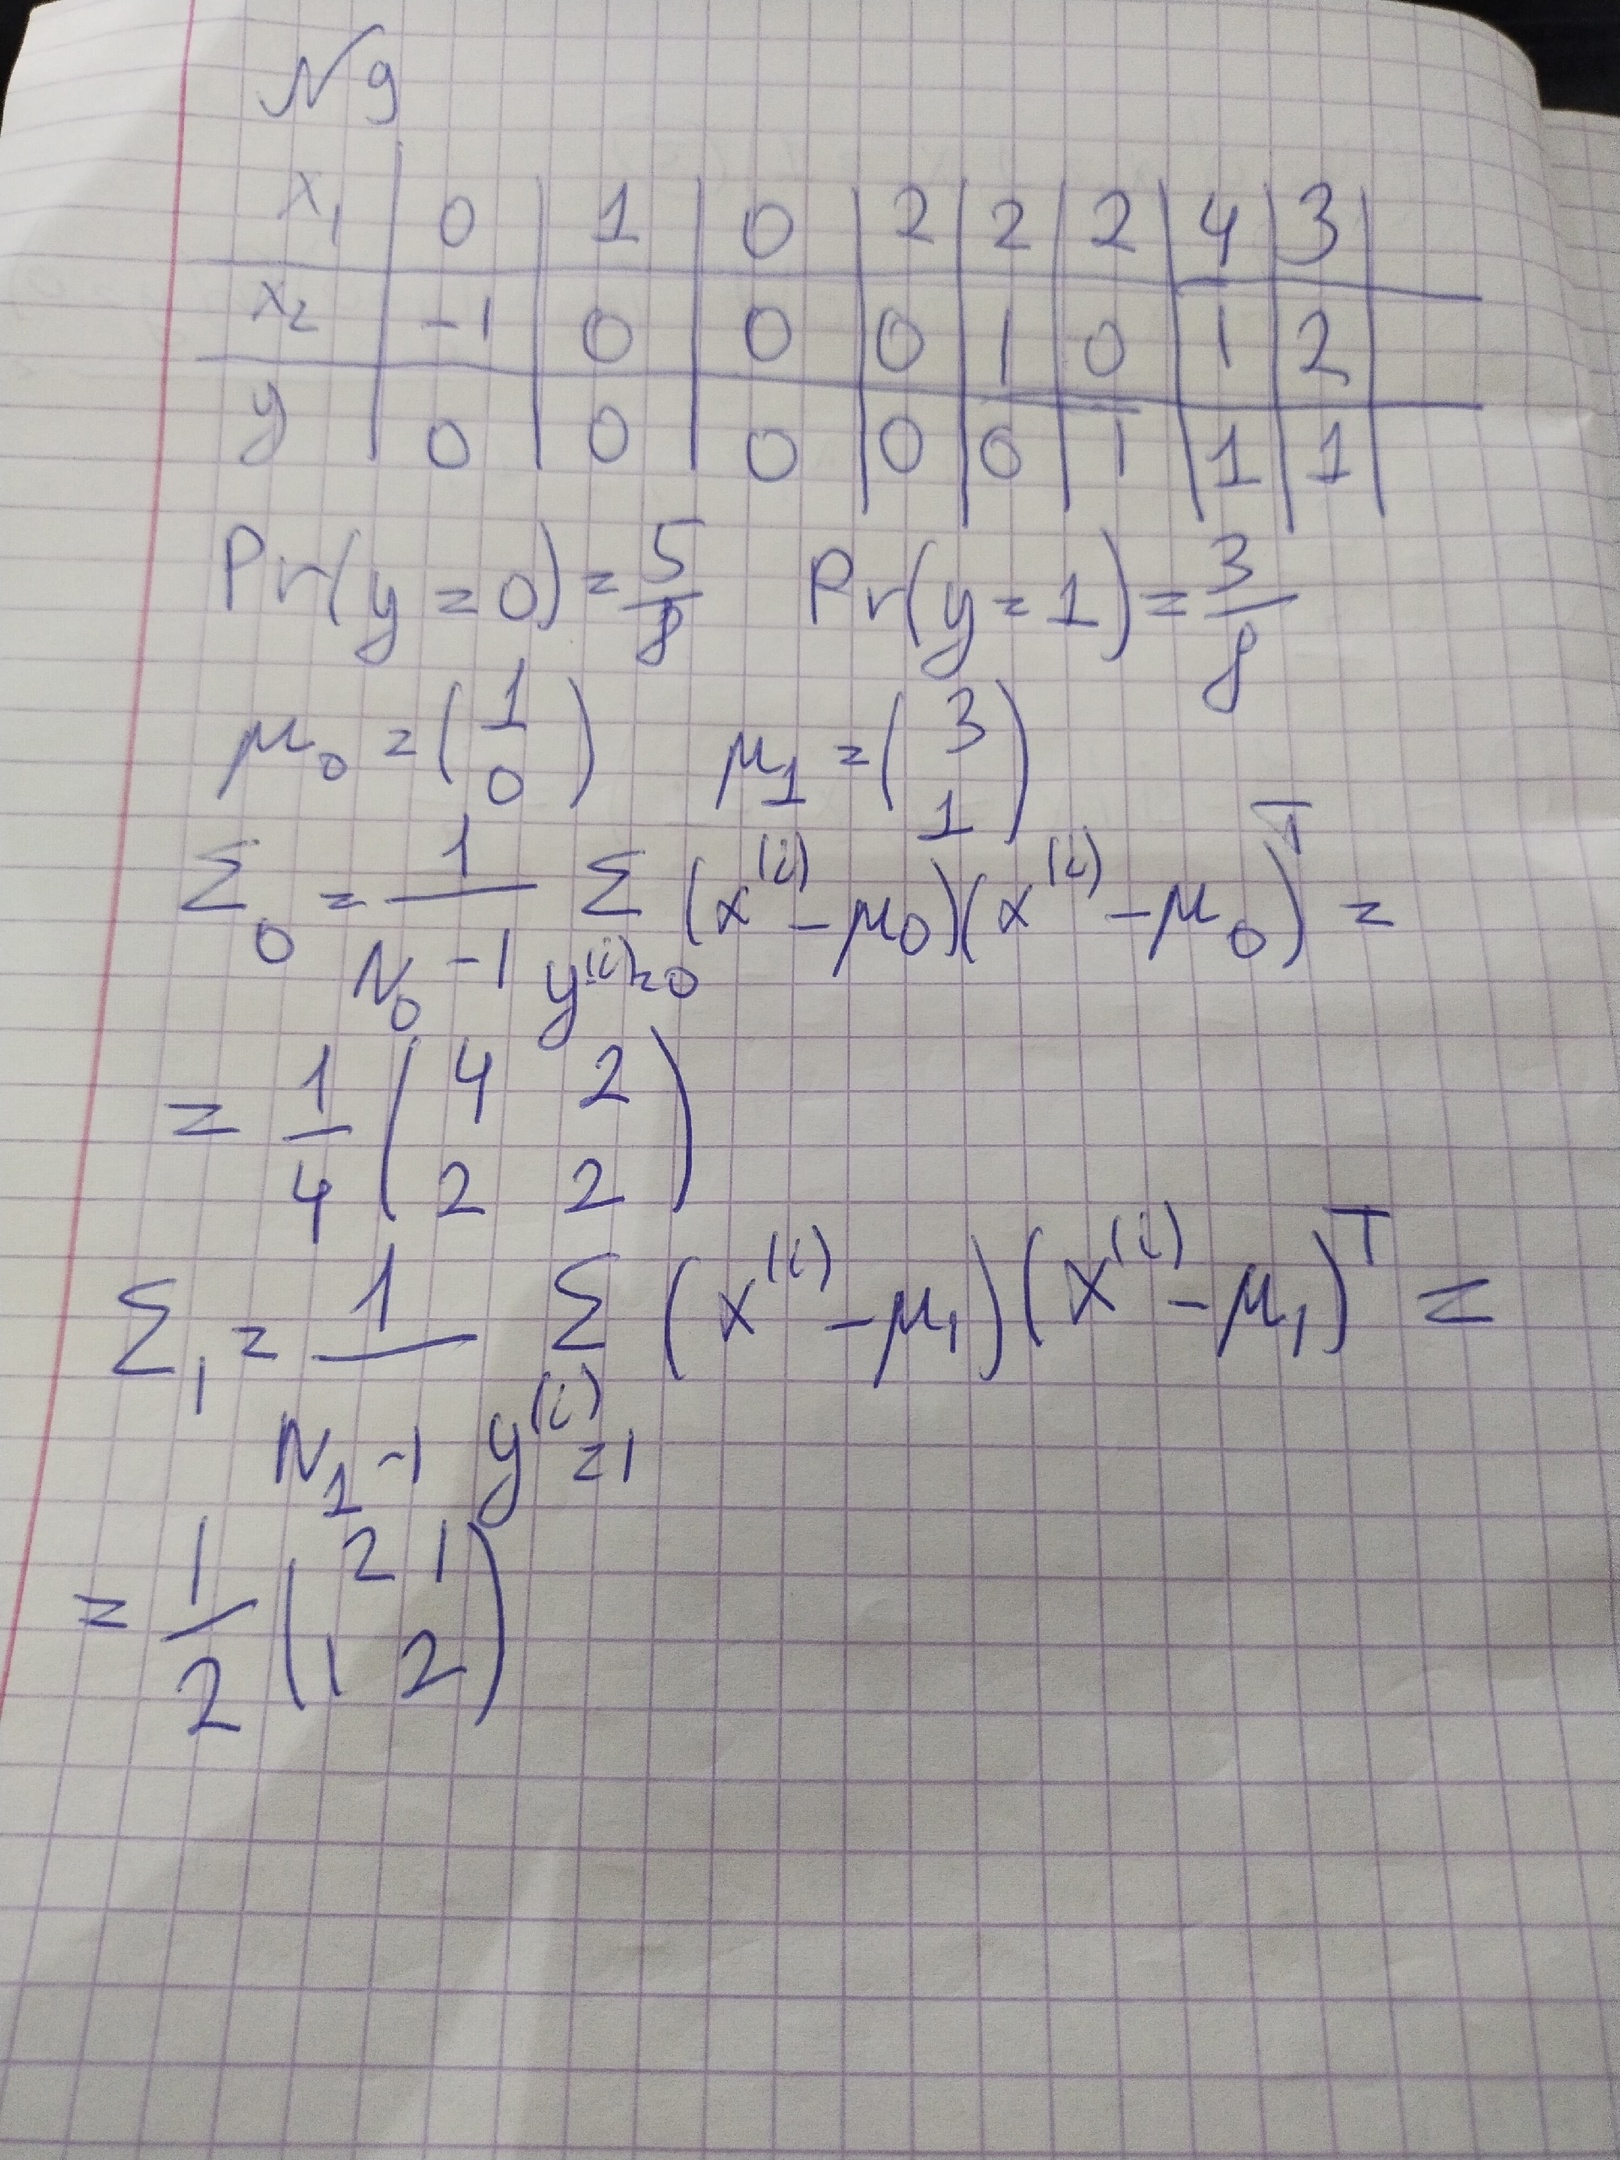 №9
x₁ | 0 | 1 | 0 | 2 | 2 | 2 | 4 | 3 |
x₂ | -1 | 0 | 0 | 0 | 1 | 0 | 1 | 2 |
y | 0 | 0 | 0 | 0 | 0 | 1 | 1 | 1 |
Pr(y=0)=5/8 Pr(y=1)=3/8
μ₀ = (1 0) μ₁ = (3 1)
Σ₀ = 1/(N₀-1) Σ y⁽ⁱ⁾=0 (x⁽ⁱ⁾-μ₀)(x⁽ⁱ⁾-μ₀)ᵀ =
= 1/4 (4 2 2 2)
Σ₁ = 1/(N₁-1) Σ y⁽ⁱ⁾=1 (x⁽ⁱ⁾-μ₁)(x⁽ⁱ⁾-μ₁)ᵀ =
= 1/2 (2 1 1 2)